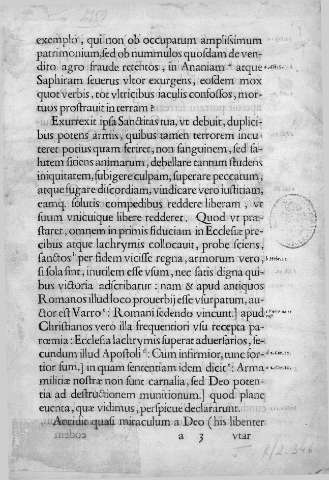 exemplo, qui non ob occupatum amplissimum
patrimonium, sed ob nummulos quosdam de ven-
dito agro fraude retentos, in Ananiam atque
Saphiram seuerus vltor exurgens, eosdem mox
quot verbis, tot vltricibus iaculis confossos, mor-
tuos prostrauit in terram?
Exurrexit ipsa Sanctitas tua, vt debuit, duplici-
bus potens armis, quibus tamen terrorem incu-
teret potius quam feriret, non sanguinem, sed sa-
lutem sitiens animarum, debellare tantum studens
iniquitatem, subigere culpam, superare peccatum,
atque fugare discordiam, vindicare vero iustitiam,
eamq. solutis compedibus reddere liberam, vt
suum vnicuique libere redderet. Quod vt præ-
staret, omnem in primis fiduciam in Ecclesiæ pre-
cibus atque lachrymis collocauit, probe sciens,
sanctos per fidem vicisse regna, armorum vero,
si sola sint, inutilem esse vsum, nec satis digna qui-
bus victoria adscribatur: nam & apud antiquos
Romanos illud loco prouerbij esse vsurpatum, au-
ctor est Varro: Romani sedendo vincunt.] apud
Christianos vero illa frequentiori vsu recepta pa-
rœmia: Ecclesia lachrymis superat aduersarios, se-
cundum illud Apostoli: Cum infirmior, tunc for-
tior sum.] in quam sententiam idem dicit: Arma
militiæ nostræ non sunt carnalia, sed Deo poten-
tia ad destructionem munitionum.] quod plane
euenta, quæ vidimus, perspicue declararunt.
Accidit quasi miraculum a Deo (his libenter
a 3 vtar